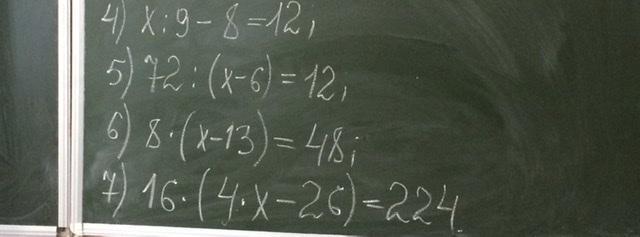 4) x : 9 - 8 = 12;
5) 72 : (x-6) = 12;
6) 8 · (x-13) = 48;
7) 16 · (4 · x - 26) = 224